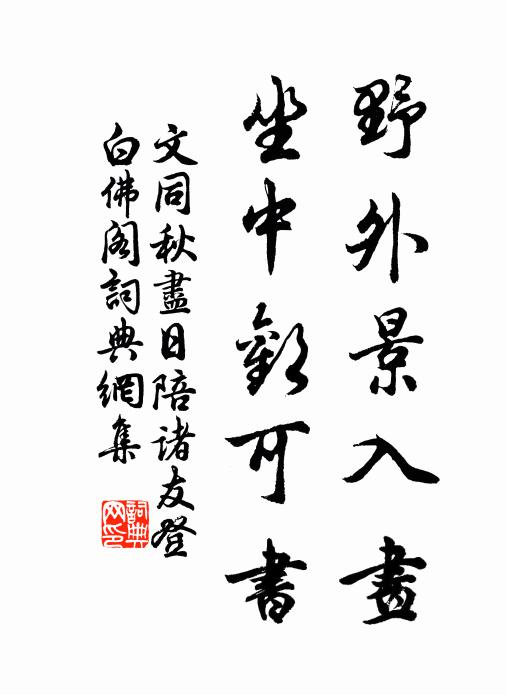 野外景入畫
坐中歡可書
文同秋盡日陪諸友登
白佛閣詞典網集
詞典
网印